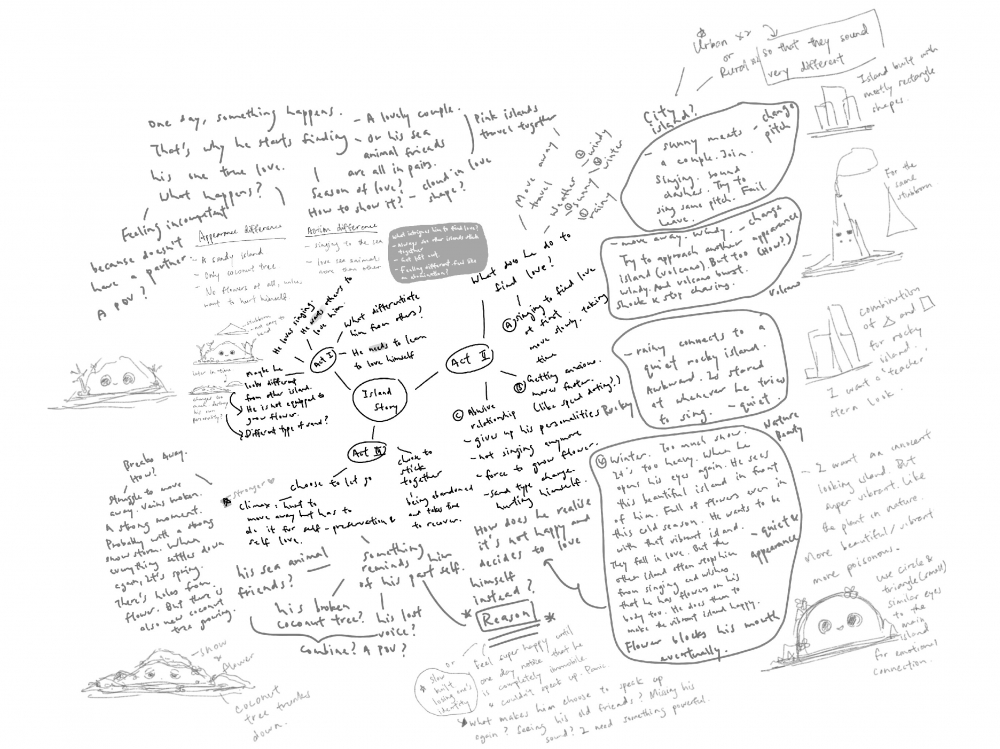 One day, something happens.
That's why he starts finding
his one true love.
What happens?
Feeling incompetent
because doesn't
have a partner
A POV?
- A lovely couple.
- Or his sea
animal friends
are all in pairs.
Season of love?
How to show it?
- cloud in love
shape?
Pink islands
travel together
Appearance difference
- A sandy island
- Only coconut tree
- No flowers at all, unless
want to hurt himself.
Action difference
- singing to the sea
- love sea animals
more than other
What intrigues him to find love?
- Always see other islands stick
together
- Got left out.
- Feeling different. Feel like
an abomination?
He loves singing.
He wants others to
love him.
What differentiate
him from others?
He needs to learn
to love himself
Act I
Maybe he
looks different
from other island.
He is not equipped to
grow flower.
Different type of sand?
Island
Story
Act II
What does he do to
find love?
Move away /
travel
Weather
windy
winter
sunny
rainy
A Singing to find love
at first
move slowly. taking
time
B Getting anxious.
moves faster.
(like speed dating?)
C Abusive
relationship
- give up his personalities
- not singing anymore
- force to grow flower.
- sand type change.
hurting himself.
City
island?
Urban x2
or
Rural x2
so that they sound
very different
- sunny meets
a couple. Join.
Singing. sound
clashes. Try to
sing same pitch. Fail.
leave.
- change
pitch
Island built with
mostly rectangle
shapes.
- move away. Windy.
Try to approach another
island (volcano). But too
windy. And volcano burst.
Shock & stop chasing.
- change
appearance
(How?)
Volcano
For the
same
stubborn
- rainy connects to a
quiet rocky island.
Awkward. Is stared
at whenever he tries
to sing.
- quiet.
Rocky
combination
of △ and □
for rocky
island.
I want a 'teacher'
stern look.
Nature
Beauty
Winter. Too much snow.
It is too heavy. When he
opens his eyes again. He sees
this beautiful island in front
of him. Full of flowers even in
this cold season. He wants to be
with that vibrant island.
They fall in love. But the
other island often stops him
from singing and wishes
that he has flowers on his
body too. He does them to
make the vibrant island happy.
Flower blocks his mouth
eventually.
- quiet &
appearance
- I want an innocent
looking island. But
super vibrant. Like
the plant in nature.
More beautiful / vibrant
more poisonous.
use circle &
triangle (small)
similar eyes
to the main
island
for emotional
connection.
Act III
choose to let go
climax: hurt to
move away but has to
do it for self-preservation &
self love.
stronger
chose to
stick
together
being abandoned
and takes time
to recover.
Breaks Away.
How?
Struggle to move
away. Veins broken.
A strong moment.
Probably with a strong
snow storm. When
everything settles down
again, it's spring.
There's holes from
flower. But there is
also new coconut
tree growing.
his sea animal
friends?
something
reminds him
of his past self.
his broken
coconut tree?
his lost
voice?
Combine? A POV?
How does he realise
it's not happy and
decides to love
himself
instead?
* Reason *
or
slow
built
losing one's
identity
Feel super happy until
one day notice that he
is completely immobile
& couldn't speak up. Panic.
What makes him choose to speak up
again? Seeing his old friends? Missing his
sound? I need something powerful.
- snow
flower
coconut
tree trunks
down.